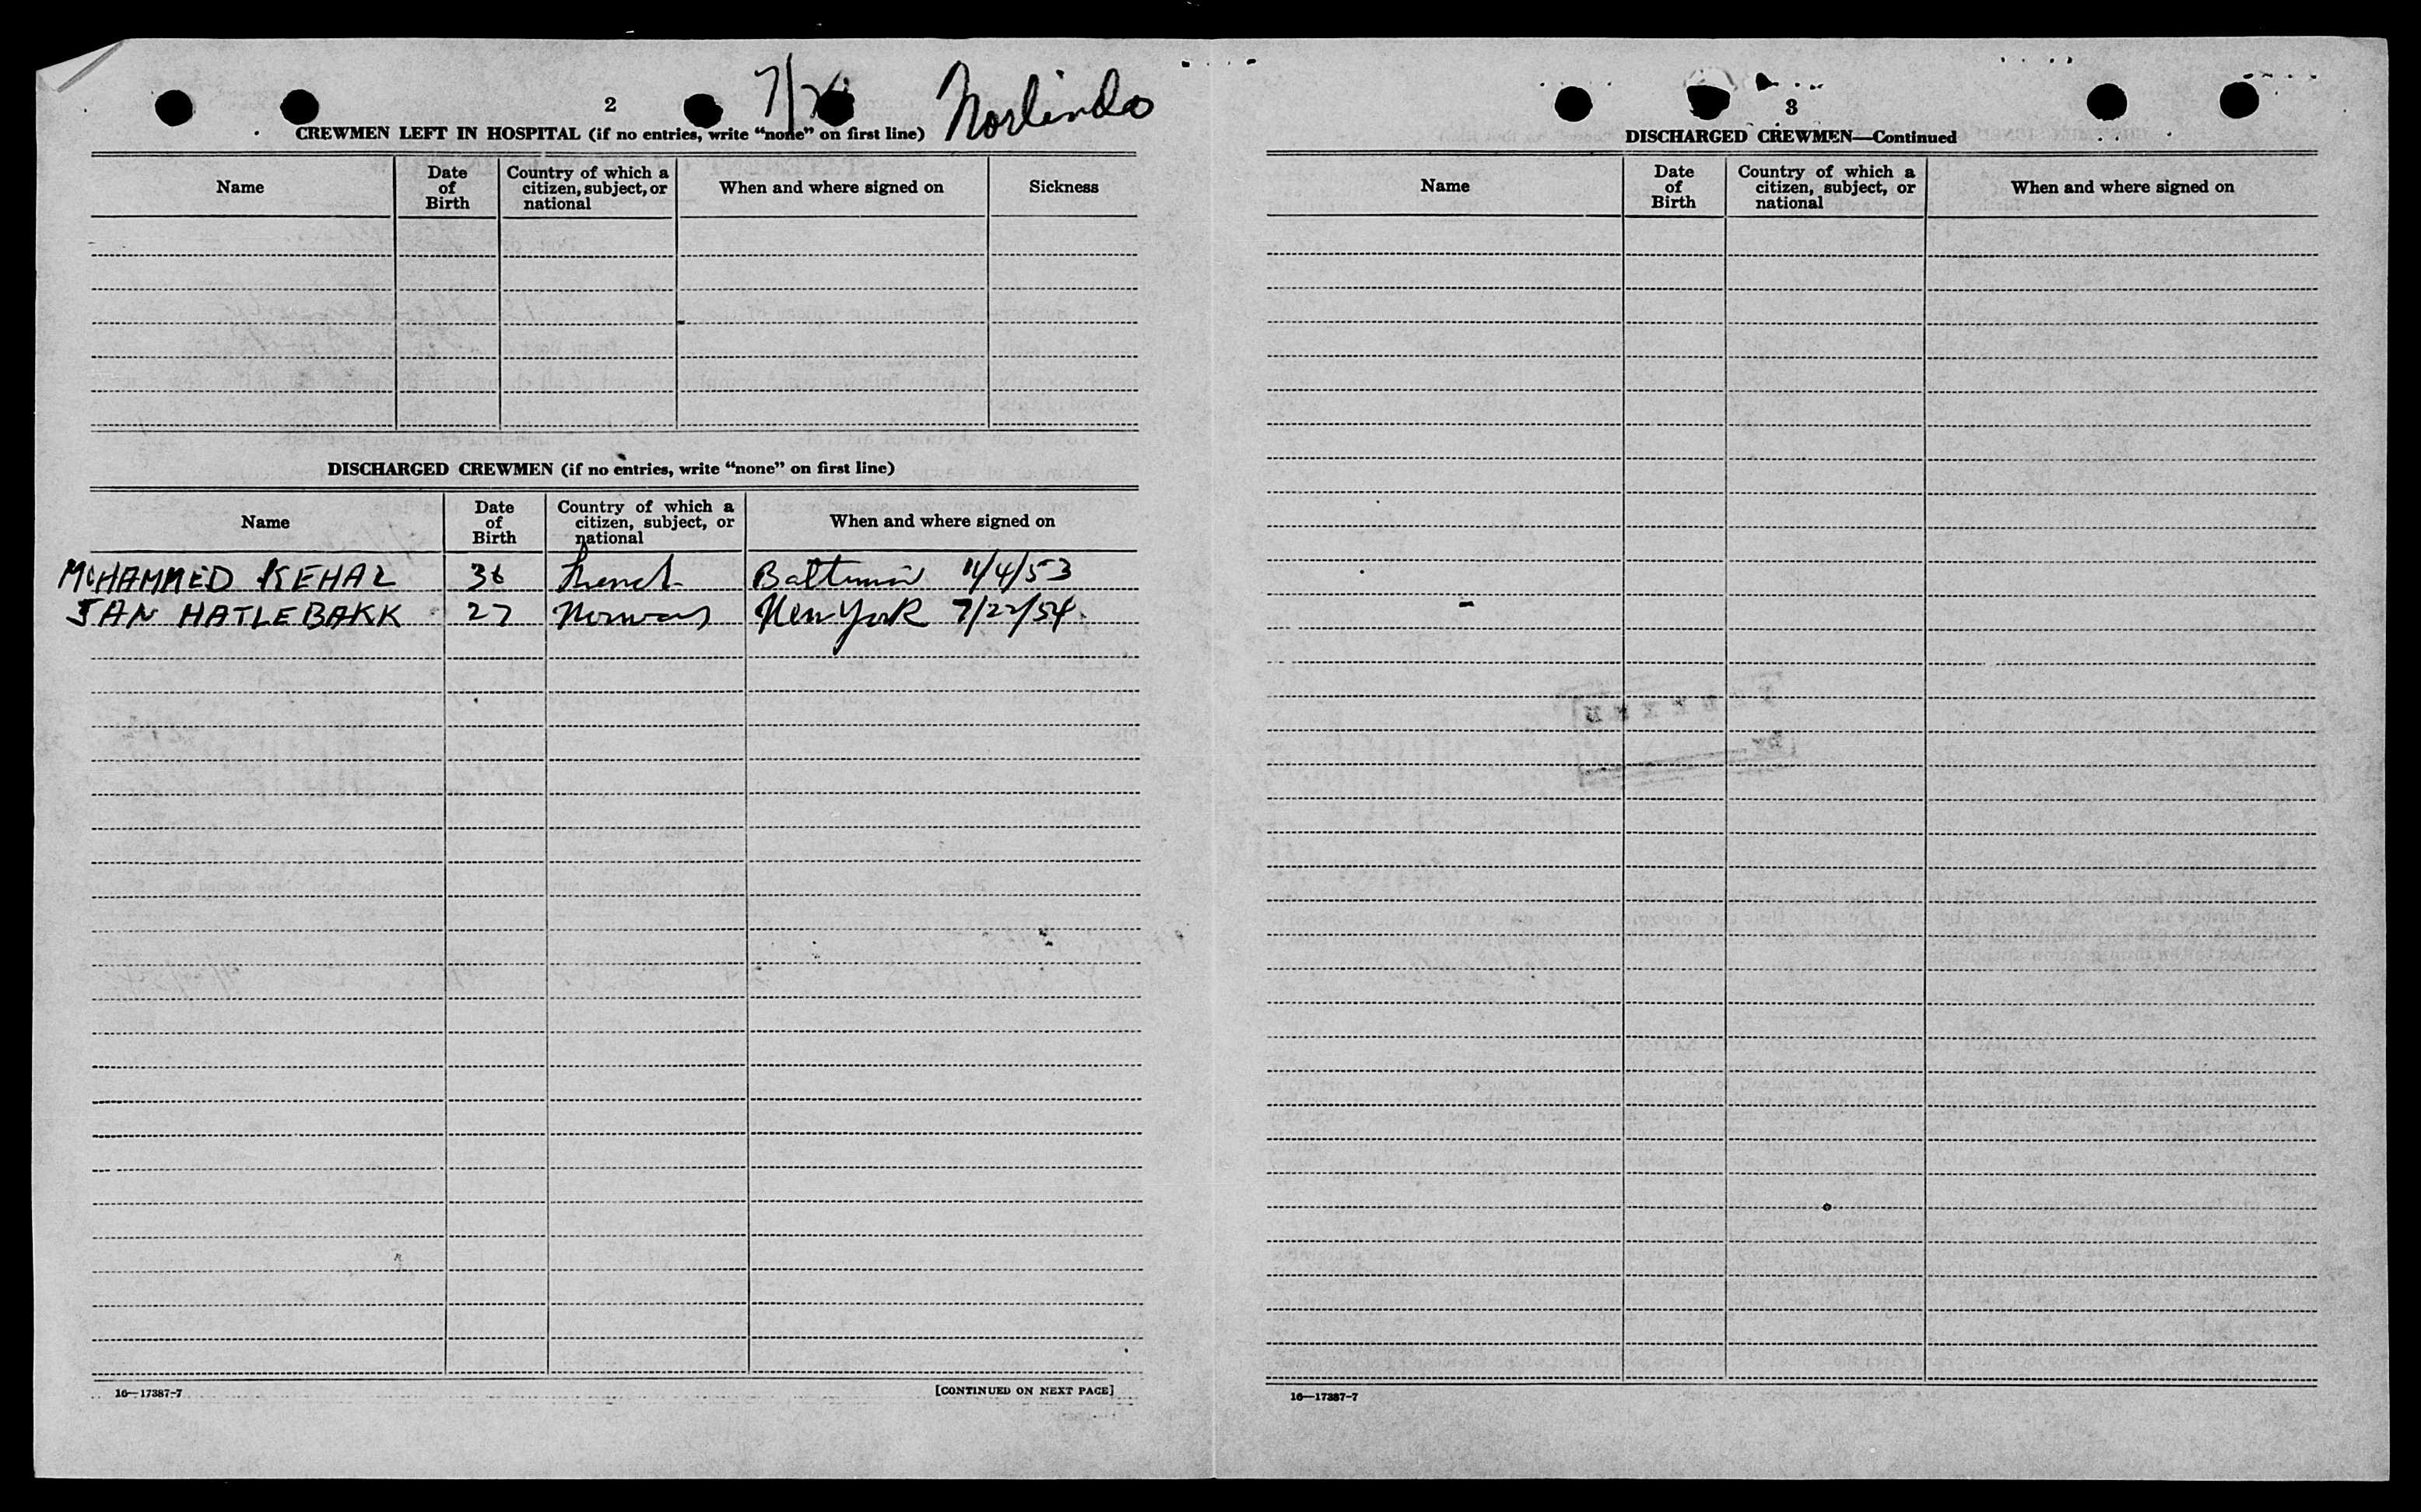 2
7/
Norlindo
CREWMEN LEFT IN HOSPITAL (if no entries, write “none” on first line)
Name
Date of Birth
Country of which a citizen, subject, or national
When and where signed on
Sickness
DISCHARGED CREWMEN (if no entries, write “none” on first line)
Name
Date of Birth
Country of which a citizen, subject, or national
When and where signed on
MOHAMMED KEHAL 36 French Baltimore 11/4/53
JAN HATLEBAKK 27 Norway New York 7/22/54
16—17387-7
[CONTINUED ON NEXT PAGE]
3
DISCHARGED CREWMEN—Continued
Name
Date of Birth
Country of which a citizen, subject, or national
When and where signed on
16—17387-7